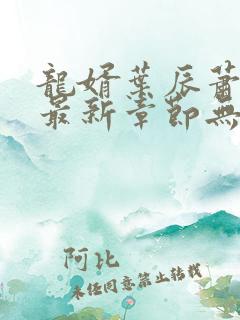 龍婿葉辰蕭
最新章節無
阿比
未經同意禁止轉載